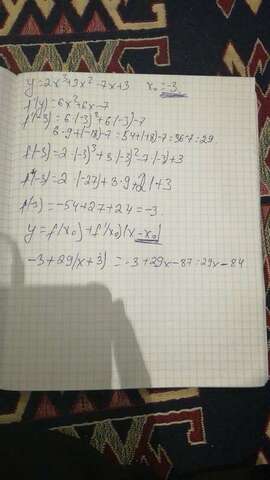 y=2x³+3x²-7x+3 x₀=-3
f'(y)=6x²+6x-7
f'(-3)=6·(-3)²+6·(-3)-7
6·9+(-18)-7=54+(-18)-7=36-7=29
f(-3)=2·(-3)³+3·(-3)²-7(-3)+3
f(-3)=2·(-27)+3·9+21+3
f(-3)=-54+27+24=-3
y=f(x₀)+f'(x₀)(x-x₀)
-3+29(x+3)=-3+29x-87=29x-84